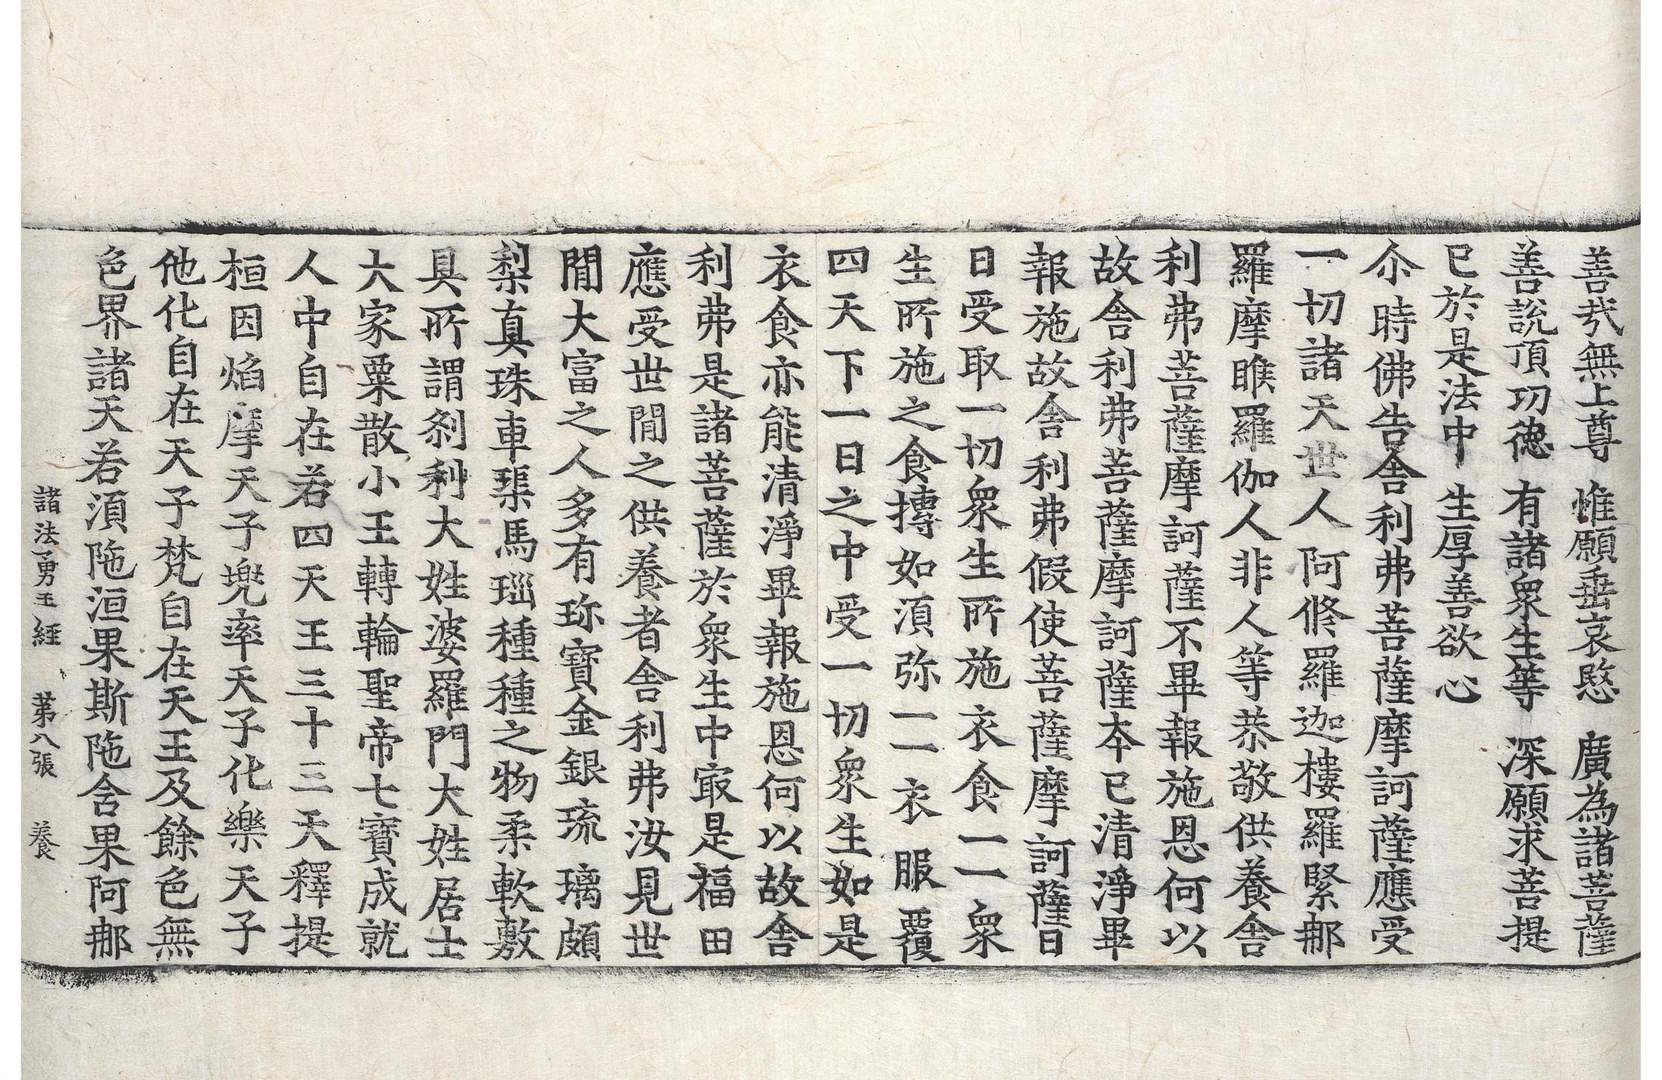 善㢤無上尊　惟願垂哀愍　廣為諸菩薩
善說頂功徳　有諸衆生等　深願求菩提
已於是法中　生厚善欲心
尒時佛告舎利弗菩薩摩訶薩應受
一切諸天世人阿修羅迦樓羅緊那
羅摩睺羅伽人非人等恭敬供養舎
利弗菩薩摩訶薩不畢報施恩何以
故舎利弗菩薩摩訶薩夲已清淨畢
報施故舎利弗假使菩薩摩訶薩日
日受取一切衆生所施衣食一一衆
生所施之食摶如湏弥一一衣服覆
四天下一日之中受一切衆生如是
衣食亦能清淨畢報施恩何以故舎
利弗是諸菩薩於衆生中㝡是福田
應受世閒之供養者舎利弗汝見世
閒大富之人多有珎寶金銀琉璃頗
梨真珠車𤦲馬瑙種種之物柔軟敷
具所謂刹利大姓婆羅門大姓居士
大家粟散小王轉輪聖帝七寶成就
人中自在若四天王三十三天釋提
桓因焰摩天子兠率天子化樂天子
他化自在天子梵自在天王及餘色無
色界諸天若湏陁洹果斯陁含果阿那
諸法勇王經　苐八張　養